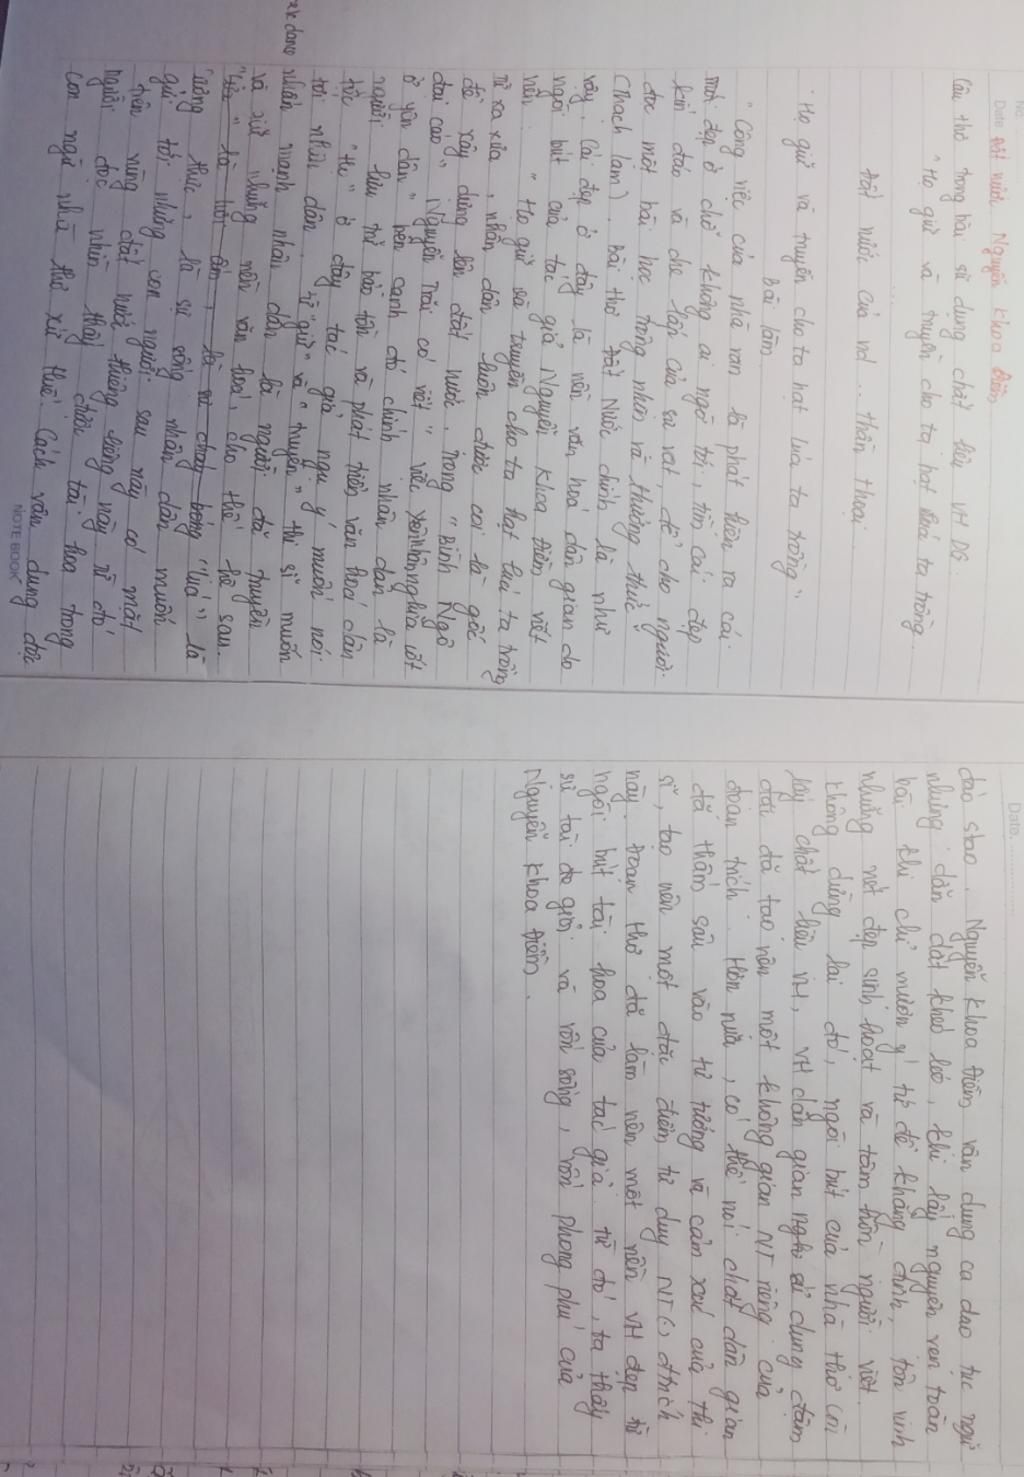 No
Date Đất nước Nguyễn Khoa Điềm
Câu thơ trong bài sử dụng chất liệu VHDG.
"Họ giữ và truyền cho ta hạt lúa ta trồng
...
Đất nước của nd... thần thoại
Bài làm
"Họ giữ và truyền cho ta hạt lúa ta trồng"
"Công việc của nhà văn là phát hiện ra cái
mới đẹp ở chỗ không ai ngờ tới, tìm cái đẹp
kín đáo và che lấp của sự vật, để cho người
đọc một bài học trông nhìn và thưởng thức"
(Thạch Lam). Bài thơ Đất Nước chính là như
vậy. Cái đẹp ở đây là nền văn hoá dân gian do
ngòi bút của tác giả Nguyễn Khoa Điềm viết
nên. "Họ giữ và truyền cho ta hạt lúa ta trồng
Từ xa xưa, nhân dân luôn được coi là gốc
để xây dựng lên đất nước. Trong "Bình Ngô
đại cáo" Nguyễn Trãi có viết "việc nhân nghĩa cốt
ở yên dân" bên cạnh đó chính nhân dân là
người lưu trữ bảo tồn và phát triển văn hoá dân
tộc "Họ" ở đây tác giả ngụ ý muốn nói
tới nhân dân. Từ "giữ" và "truyền" thi sĩ muốn
nhấn mạnh nhân dân là người đã truyền
và giữ những nền văn hoá, cho thế hệ sau.
"Lúa" là là sự "lúa" là
lương thực, là sự sống nhân dân muốn
gửi tới những con người sau này có mặt
trên vùng đất nước thiêng liêng này từ đó
người đọc nhìn thấy được tài hoa trong
con ngữ nhà thơ xứ Huế. Cách vận dụng độc
NOTE BOOK
Date
đáo stao. Nguyễn Khoa Điềm vận dụng ca dao tục ngữ
nhưng dẫn dắt khéo léo, khi lấy nguyên vẹn toàn
bài khi chỉ mượn ý tứ để khẳng định, tôn vinh
những nét đẹp sinh hoạt và tâm hồn người việt.
không dừng lại đó, ngòi bút của nhà thơ còn
lấy chất liệu VH, VH dân gian sử dụng đậm
đặc đã tạo nên một không gian NT riêng của
đoạn trích. Hơn nữa, có thể nói chất dân gian
đã thấm sâu vào tư tưởng và cảm xúc của thi
sĩ, tạo nên một đặc điểm tư duy NT (-) đtrích
này. Đoạn thơ đã làm nên một nền VH đẹp từ
ngòi bút tài hoa của tác giả. Từ đó, ta thấy
sử tài do giỏi và vốn sống, vốn phong phú của
Nguyễn Khoa Điềm.